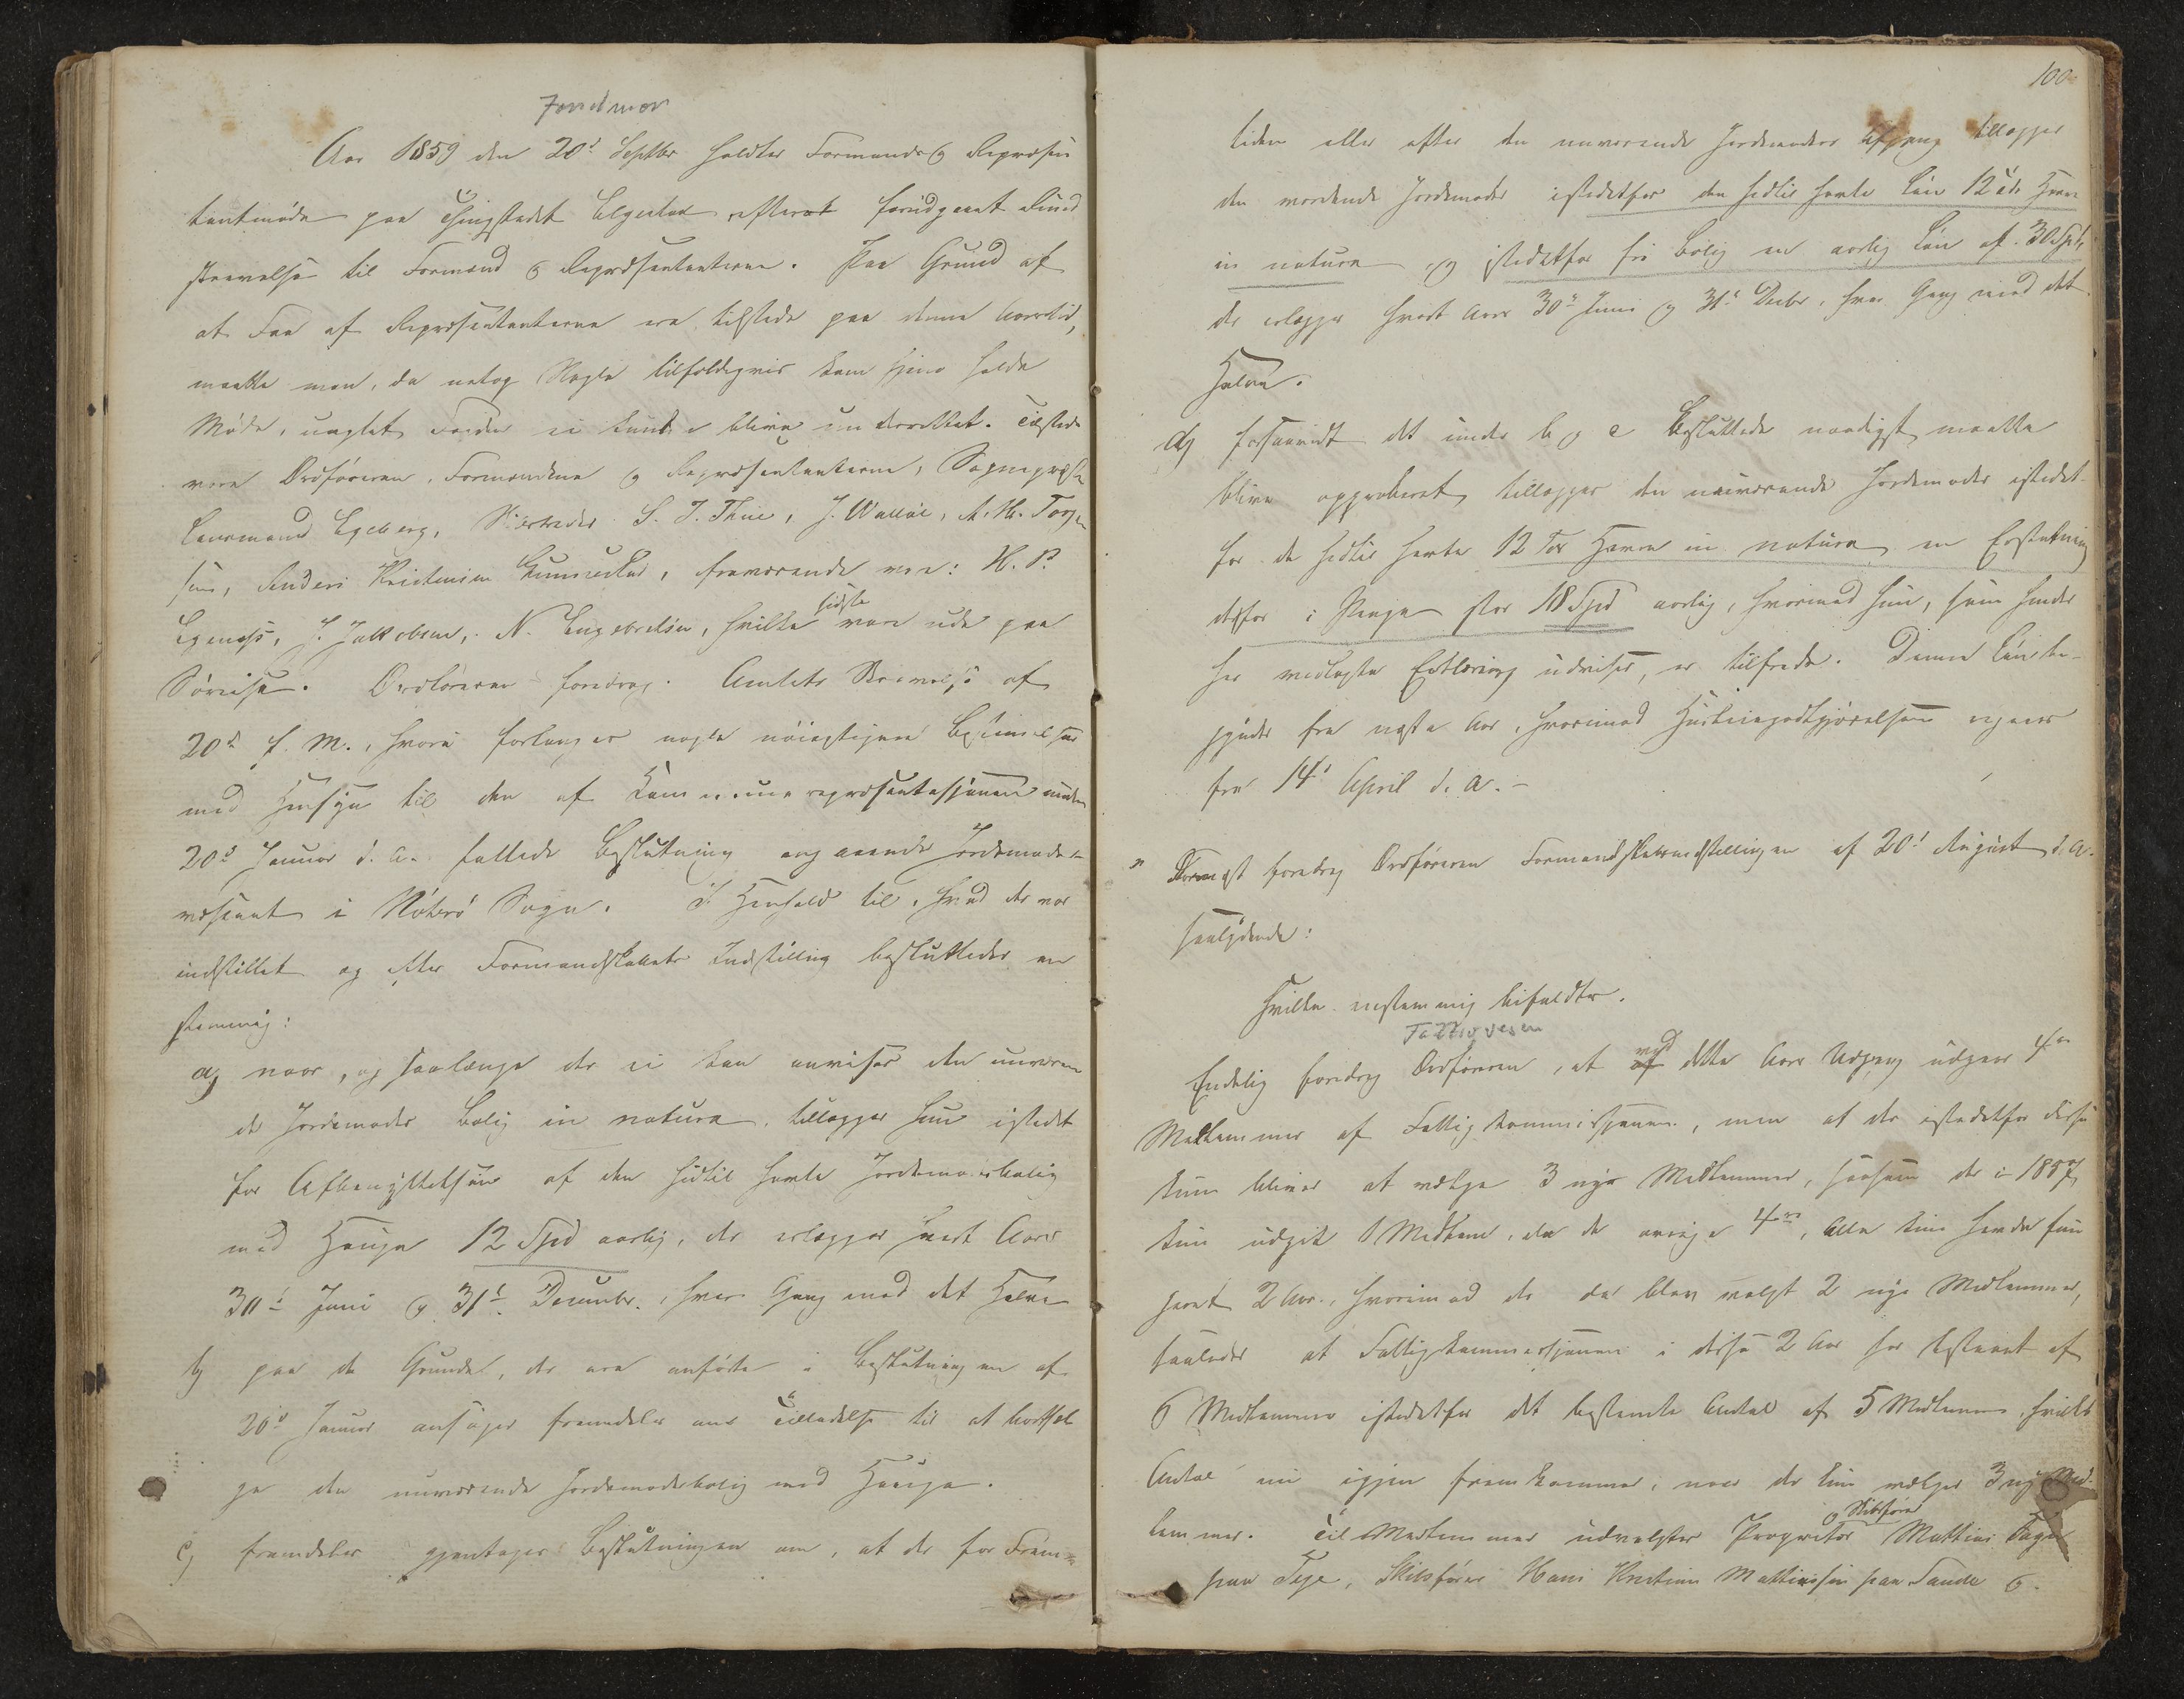 Jordmor
Aar 1859 den 20d Septbr holdtes Formands og Repræsen
tantmøde paa Thingstedet Elgestad efterat forudgaaet Rund
skrivelse til Formænd og Repræsentanterne. Paa Grund af
at Faa af Repræsentanterne ere tilstede paa denne Aarstid,
maatte man, da netop Nogle tilfældigvis kom hjem holde
Møde, uagtet Enhver ei kunde blive underrettet. Tilstede
vare Ordføreren, Formændene og Repræsentanterne, Sogneprest
Lensmand Egeberg, S. J. Thue, J. Walløe, A. M. Torge
sen, Anders Kristensen fraværende vare: H. P.
J. Jakobsen, N. Engebretsen, hvilke sidste vare ude paa
Søreise. Ordføreren foredrog Amtets Skrivelse af
20d f. M., hvori forlanges nogle nøiagtigere Bestemmelser
med Hensyn til den af Kommunerepræsentasjonen under
20d Januar d. A. fattede Beslutning angaaende Jordemoder
væsenet i Nøterø Sogn. I Henhold til, hvad der var
indstillet og efter Formandskabets Indstilling besluttedes en
stemmig:
a) naar, og saalænge der ei kan anvises den nuværen
de Jordemoder Bolig in natura, tillægges hun istedet
for Afbenyttelsen af den hidtil havte Jordemoderbolig
med Hauge 12 Spd aarlig, der erlægges hvert Aars
30d Juni og 31d December, hver Gang med det Halve
b) paa de Grunde, der ere anførte i Beslutningen af
20d Januar ansøges fremdeles om Tilladelse til at bortsæl
ge den nuværende Jordemoderbolig med Hauge.
c) fremdeles gjentages Beslutningen om, at der for Frem=
100
tiden eller efter den nuværende Jordemoders Afgang tillægges
den vordende Jordemoder istedetfor den hidtil havte Løn 12 Tdr Havre
in natura, og istedetfor fri Bolig en aarlig Løn af 30 Spd,
der erlægges hvert Aars 30d Juni og 31d Decbr, hver Gang med det
Halve.
d) forsaavidt det under b og c Besluttede naadigst maatte
blive approberet, tillægges den nuværende Jordemoder istedet
for de hidtil havte 12 Tdr Havre in natura en Erstatning
derfor i Penge stor 18 Spd aarlig, hvormed hun, som hendes
her vedlagte Erklæring udviser, er tilfreds. Denne Løn be-
gynder fra næste Aar, hvorimod Husleiegodtgjørelsen regnes
fra 14d April d. A. –
Dernæst foredrog Ordføreren Formandskabsindstillingen af 20d August d. A.
saalydende:
hvilke enstemmig bifaldtes.
Fattigvesen
Endelig foredrog Ordføreren, at ved dette Aars Udgang udgaar 4re
Medlemmer af Fattigkommissjonen, men at der istedetfor disse
kun bliver at vælge 3 nye Medlemmer, saasom der i 1857
kun udgik 1 Medlem, da de øvrige 4re, alle kun havde fun
geret 2 Aar, hvorimod der da blev valgt 2 nye Medlemmer,
saaledes at Fattigkommissjonen i disse 2 Aar har bestaaet af
6 Medlemmer istedetfor det bestemte Antal af 5 Medlemmer, hvilket
Antal nu igjen fremkommer, naar der kun vælges 3 nye Med-
lemmer. Til Medlemmer udvalgtes Proprietær og Skibsfører Mathias
paa Teje, Skibsfører Hans Kristian Mathiassen paa Sande og